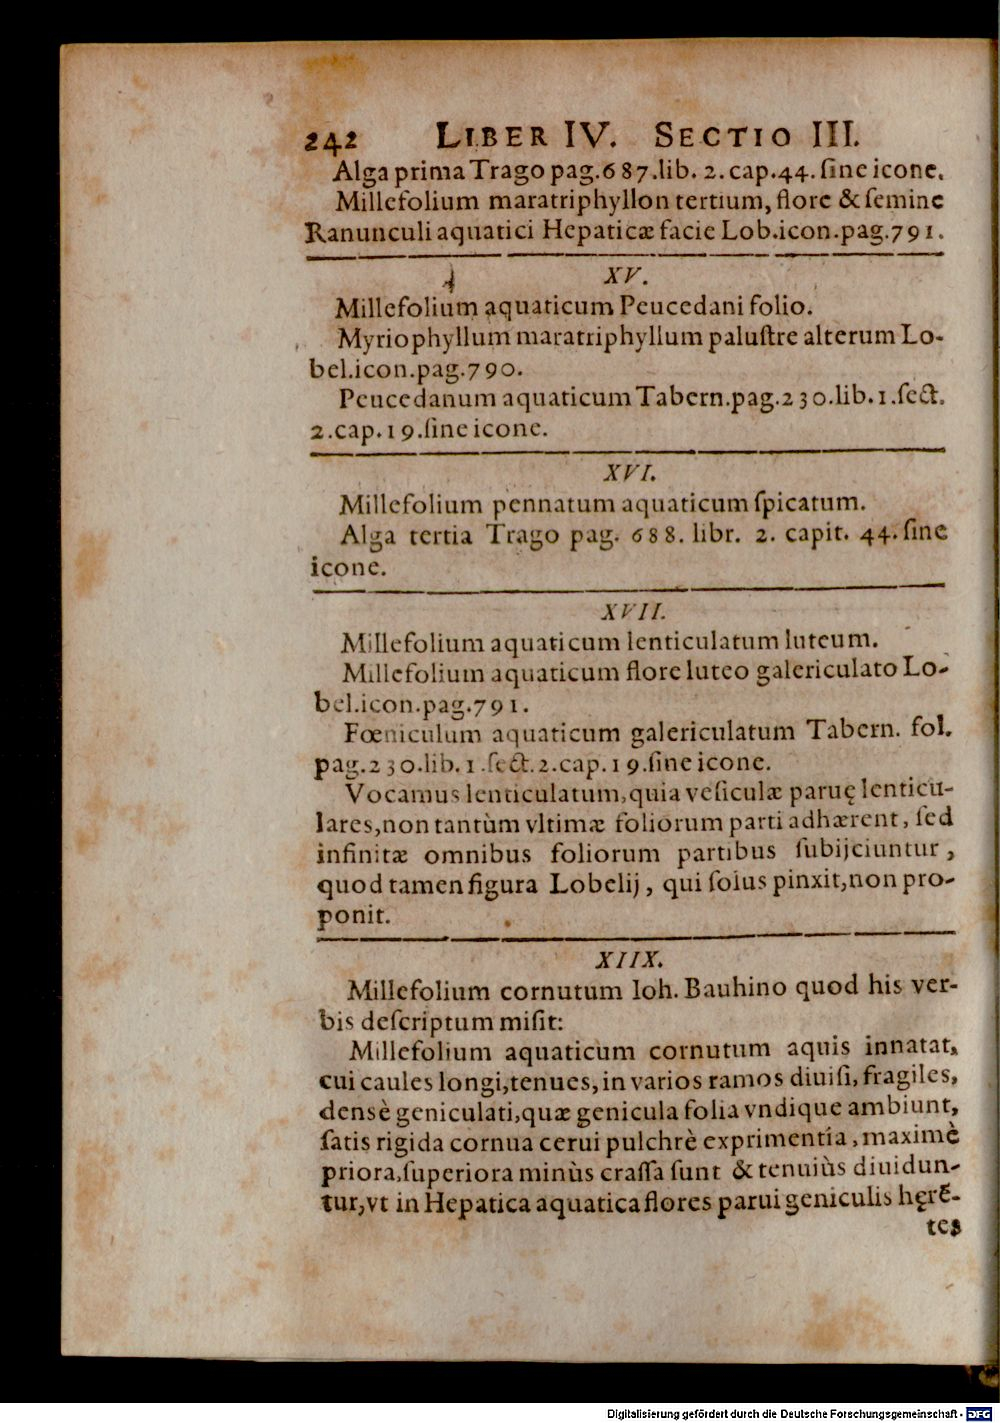 242 LIBER IV. SECTIO III.
Alga prima Trago pag.687.lib. 2. cap.44. ſine icone.
Millefolium maratriphyllon tertium, flore & ſemine
Ranunculi aquatici Hepaticæ facie Lob.icon.pag.791.
XV.
Millefolium aquaticum Peucedani folio.
Myriophyllum maratriphyllum paluſtre alterum Lo-
bel.icon.pag.790.
Peucedanum aquaticum Tabern.pag.230.lib.1.ſect.
2.cap.19.ſine icone.
XVI.
Millefolium pennatum aquaticum ſpicatum.
Alga tertia Trago pag. 688. libr. 2. capit. 44. ſine
icone.
XVII.
Millefolium aquaticum lenticulatum luteum.
Millefolium aquaticum flore luteo galericulato Lo-
bel.icon.pag.791.
Fœniculum aquaticum galericulatum Tabern. fol.
pag.230.lib.1.ſect.2.cap.19.ſine icone.
Vocamus lenticulatum,quia veſiculæ paruę lenticu-
lares,non tantùm vltimæ foliorum parti adhærent, ſed
infinitæ omnibus foliorum partibus ſubijciuntur,
quod tamen figura Lobelij, qui ſolus pinxit,non pro-
ponit.
XIIX.
Millefolium cornutum Ioh. Bauhino quod his ver-
bis deſcriptum miſit:
Millefolium aquaticum cornutum aquis innatat,
cui caules longi,tenues, in varios ramos diuiſi, fragiles,
densè geniculati,quæ genicula folia vndique ambiunt,
ſatis rigida cornua cerui pulchrè exprimentia, maximè
priora,ſuperiora minùs craſſa ſunt & tenuiùs diuidun-
tur,vt in Hepatica aquatica flores parui geniculis hęrẽ-
tes
Digitalisierung gefördert durch die Deutsche Forschungsgemeinschaft - DFG